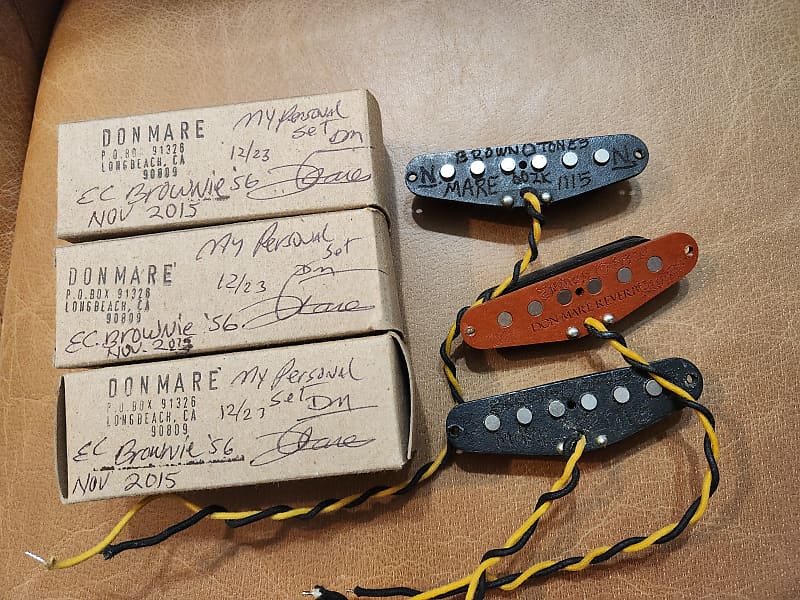 DONMARE
P.O.BOX 91326
LONGBEACH, CA
90809
MY Personal
Set
Dm
12/23
EC Brownie '56
NOV 2015
DONMARE
P.O.BOX 91326
LONGBEACH, CA
90809
MY Personal
Set
Dm
12/23
EC. Brownie '56
NOV. 2015
DONMARE
P.O.BOX 91326
LONGBEACH, CA
90809
MY Personal
Set Dm
12/23
EC Brownie '56
NOV 2015
BROWNOTONES
N N
MARE 602K 1115
DON MARE REVERB